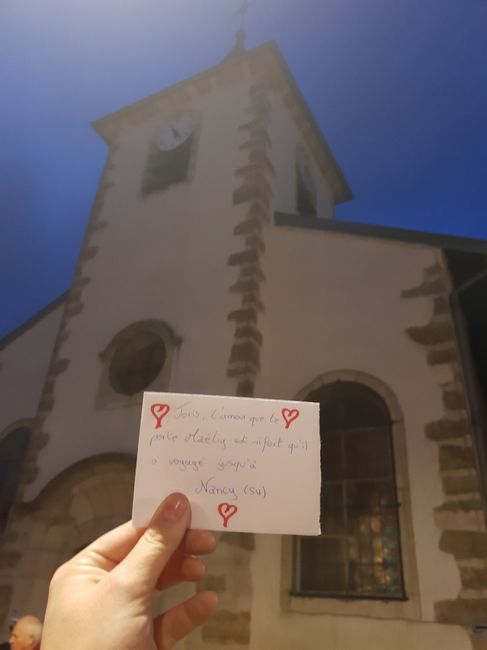 Joris, L'amour que te
porte Maëlys est si fort qu'il
a voyagé jusqu'à
Nancy (54)